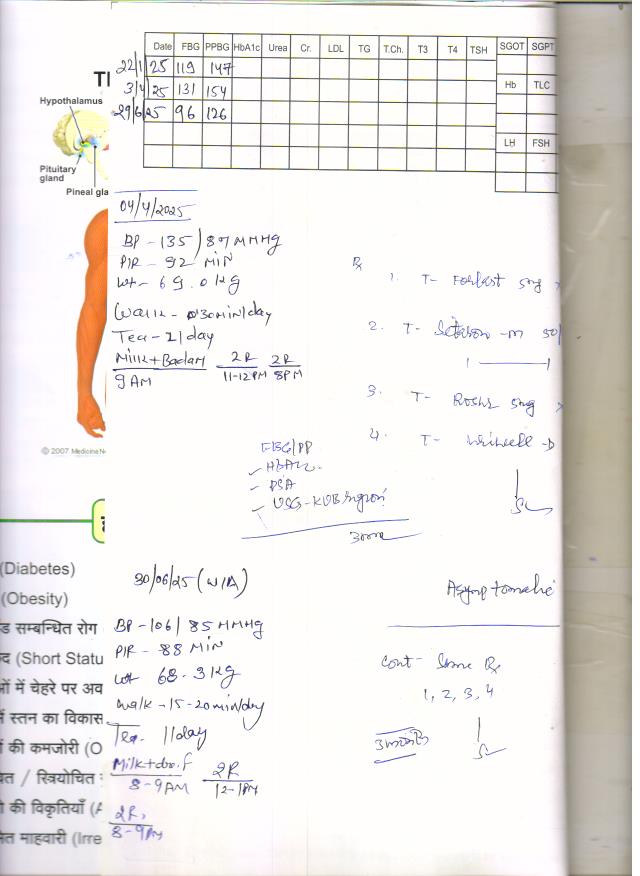 Date FBG PPBG HbA1c Urea Cr. LDL TG T.Ch. T3 T4 TSH SGOT SGPT
22/1/25 119 147
3/4/25 131 154
29/6/25 96 126
Hb TLC
LH FSH
Hypothalamus
Pituitary
gland
Pineal gla
© 2007 MedicineN
04/4/2025
BP - 135/87 MMHg
P/R - 92 MIN
Wt - 69.0 kg
Walk - 30min/day
Tea - 2/day
Milk+Badam 2R 2R
9 AM 11-12PM 8PM
Rx
1. T-
2. T- -M 50/
3. T- 5mg
4. T-
FBG/PP
HbA1c
PSA
USG-KUB
30/06/25 (W/A)
BP - 106/85 MMHg
P/R - 88 MIN
Wt 68.3 kg
Walk - 15-20min/day
Tea - 1/day
Milk+
8-9AM 2R
12-1PM
2R
8-9PM
Asymptomatic
Cont - Same Rx
1, 2, 3, 4
(Diabetes)
(Obesity)
ड सम्बन्धित रोग
द (Short Statu
ओं में चेहरे पर अव
में स्तन का विकास
ों की कमजोरी (O
यत / स्त्रियोचित
की विकृतियाँ (A
मेत माहवारी (Irre